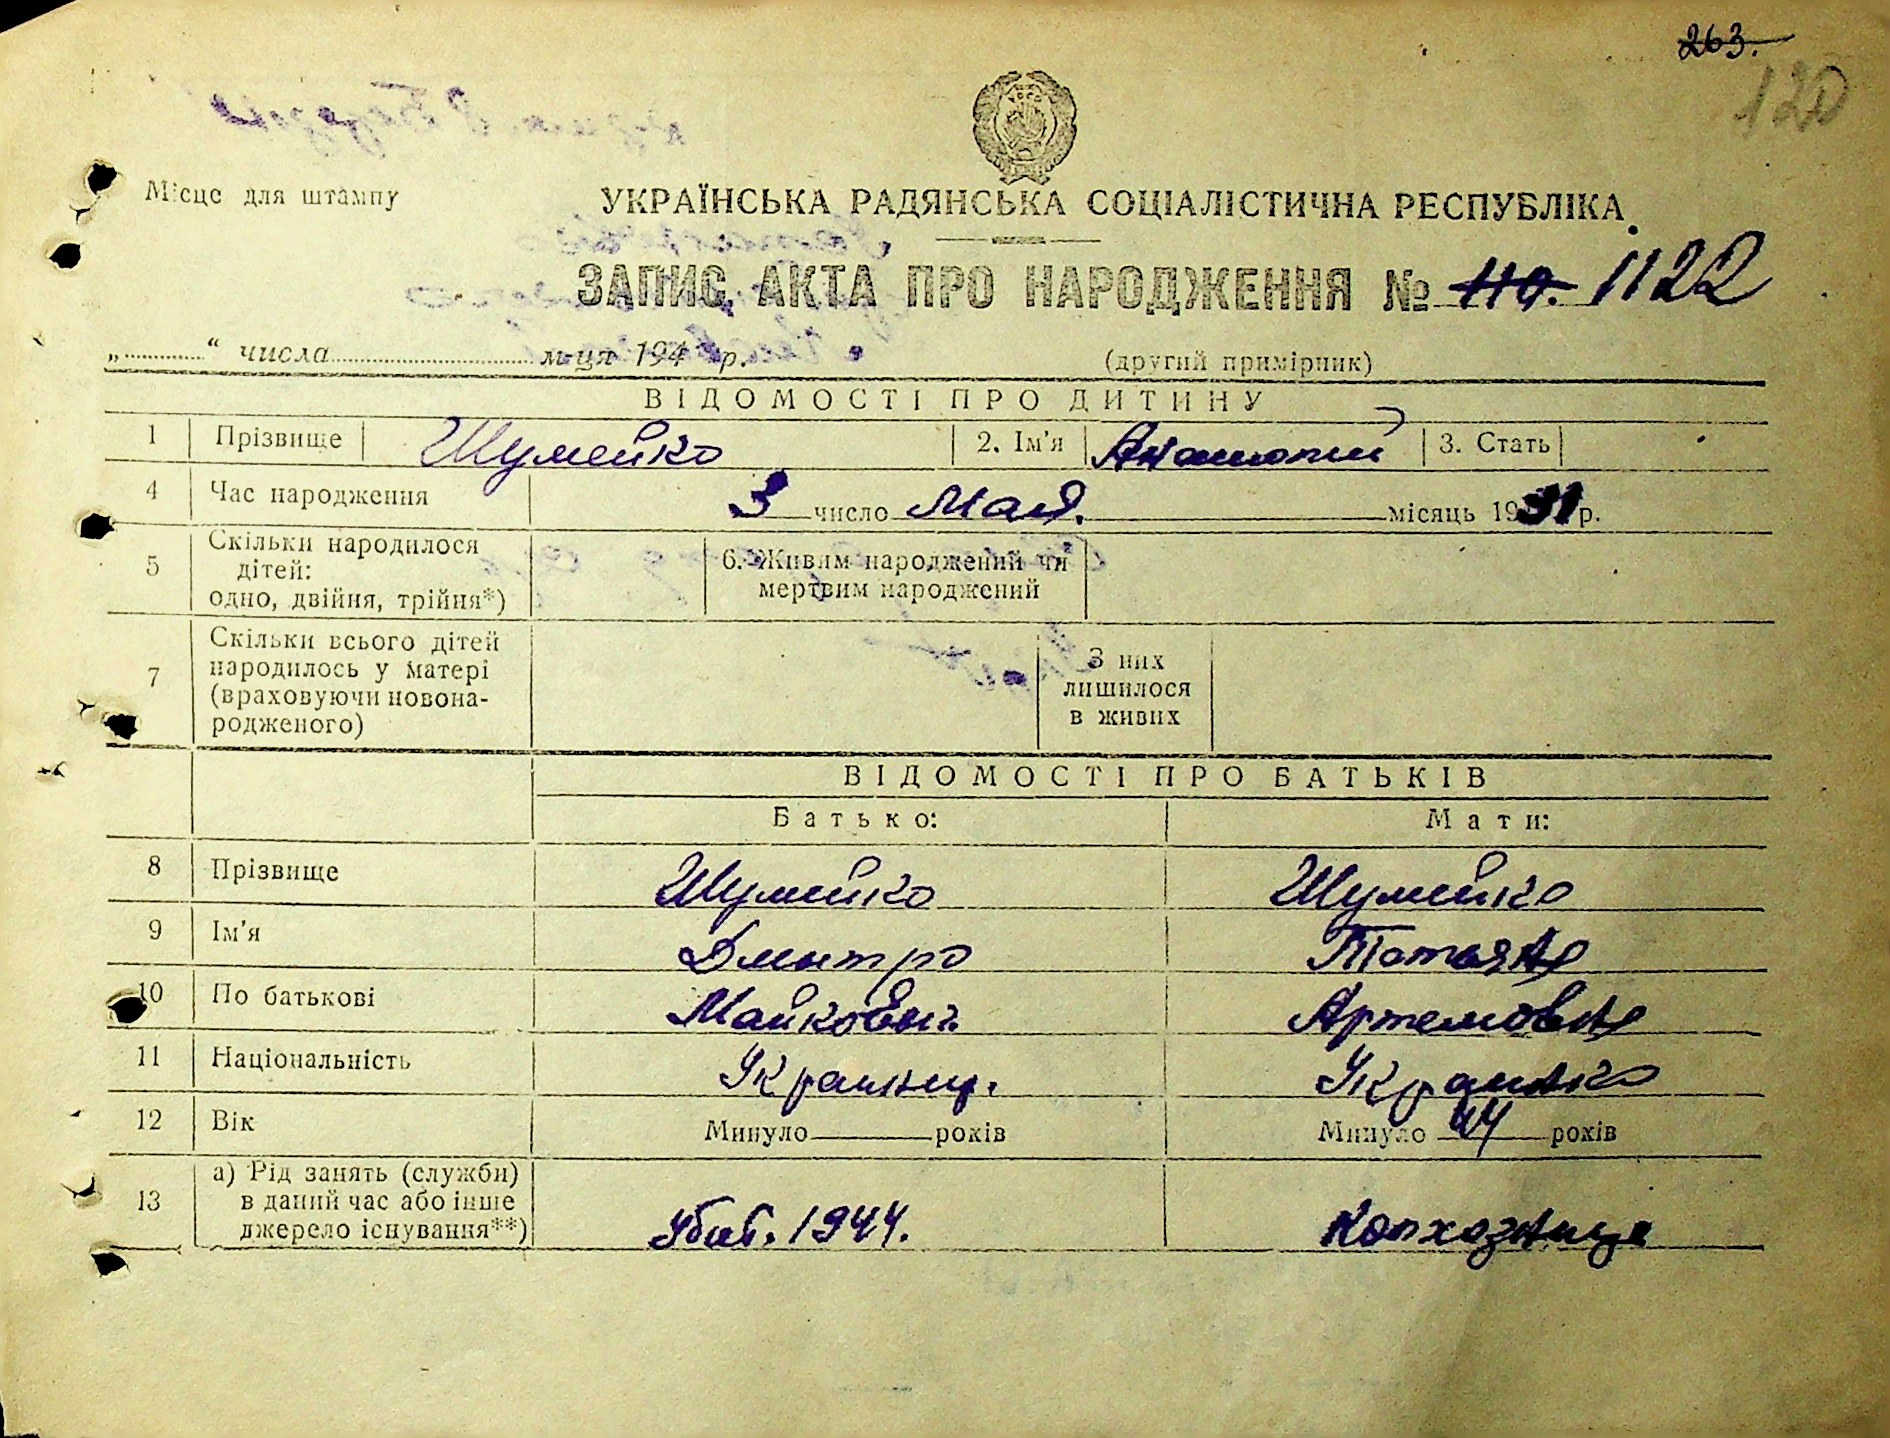 263.
120
Місце для штампу
УКРАЇНСЬКА РАДЯНСЬКА СОЦІАЛІСТИЧНА РЕСПУБЛІКА
ЗАПИС АКТА ПРО НАРОДЖЕННЯ № 110. 1122
„ “ числа м-ця 194 р. (другий примірник)
ВІДОМОСТІ ПРО ДИТИНУ
1 Прізвище Шумейко 2. Ім'я Анатолий 3. Стать
4 Час народження 3 число Мая. місяць 1931 р.
5 Скільки народилося дітей: одно, двійня, трійня*) 6. Живим народжений чи мертвим народжений
7 Скільки всього дітей народилось у матері (враховуючи новонародженого) З них лишилося в живих
ВІДОМОСТІ ПРО БАТЬКІВ
Батько: Мати:
8 Прізвище Шумейко Шумейко
9 Ім'я Дмитро Татьяна
10 По батькові Майкович Артемовна
11 Національність Украинец. Украинка
12 Вік Минуло років Минуло 44 років
13 а) Рід занять (служби) в даний час або інше джерело існування**) Убит. 1944. Колхозница